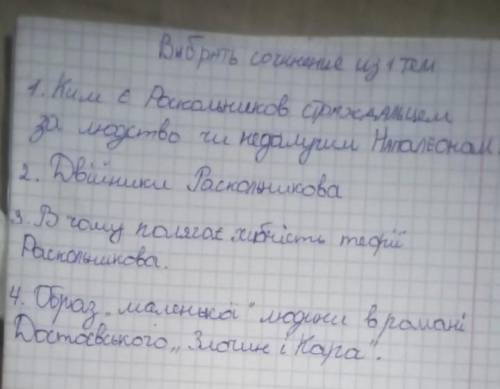 Вибрать сочинение из 1 тем
1. Ким є Роскольников стражданьцем
за людство чи недалучим Наполеоном.
2. Двійники Раскольникова
3. В чому полягає хибність теорії
Раскольникова.
4. Образ „маленької" людини в романі
Достоєвського „Злочин і Кара".